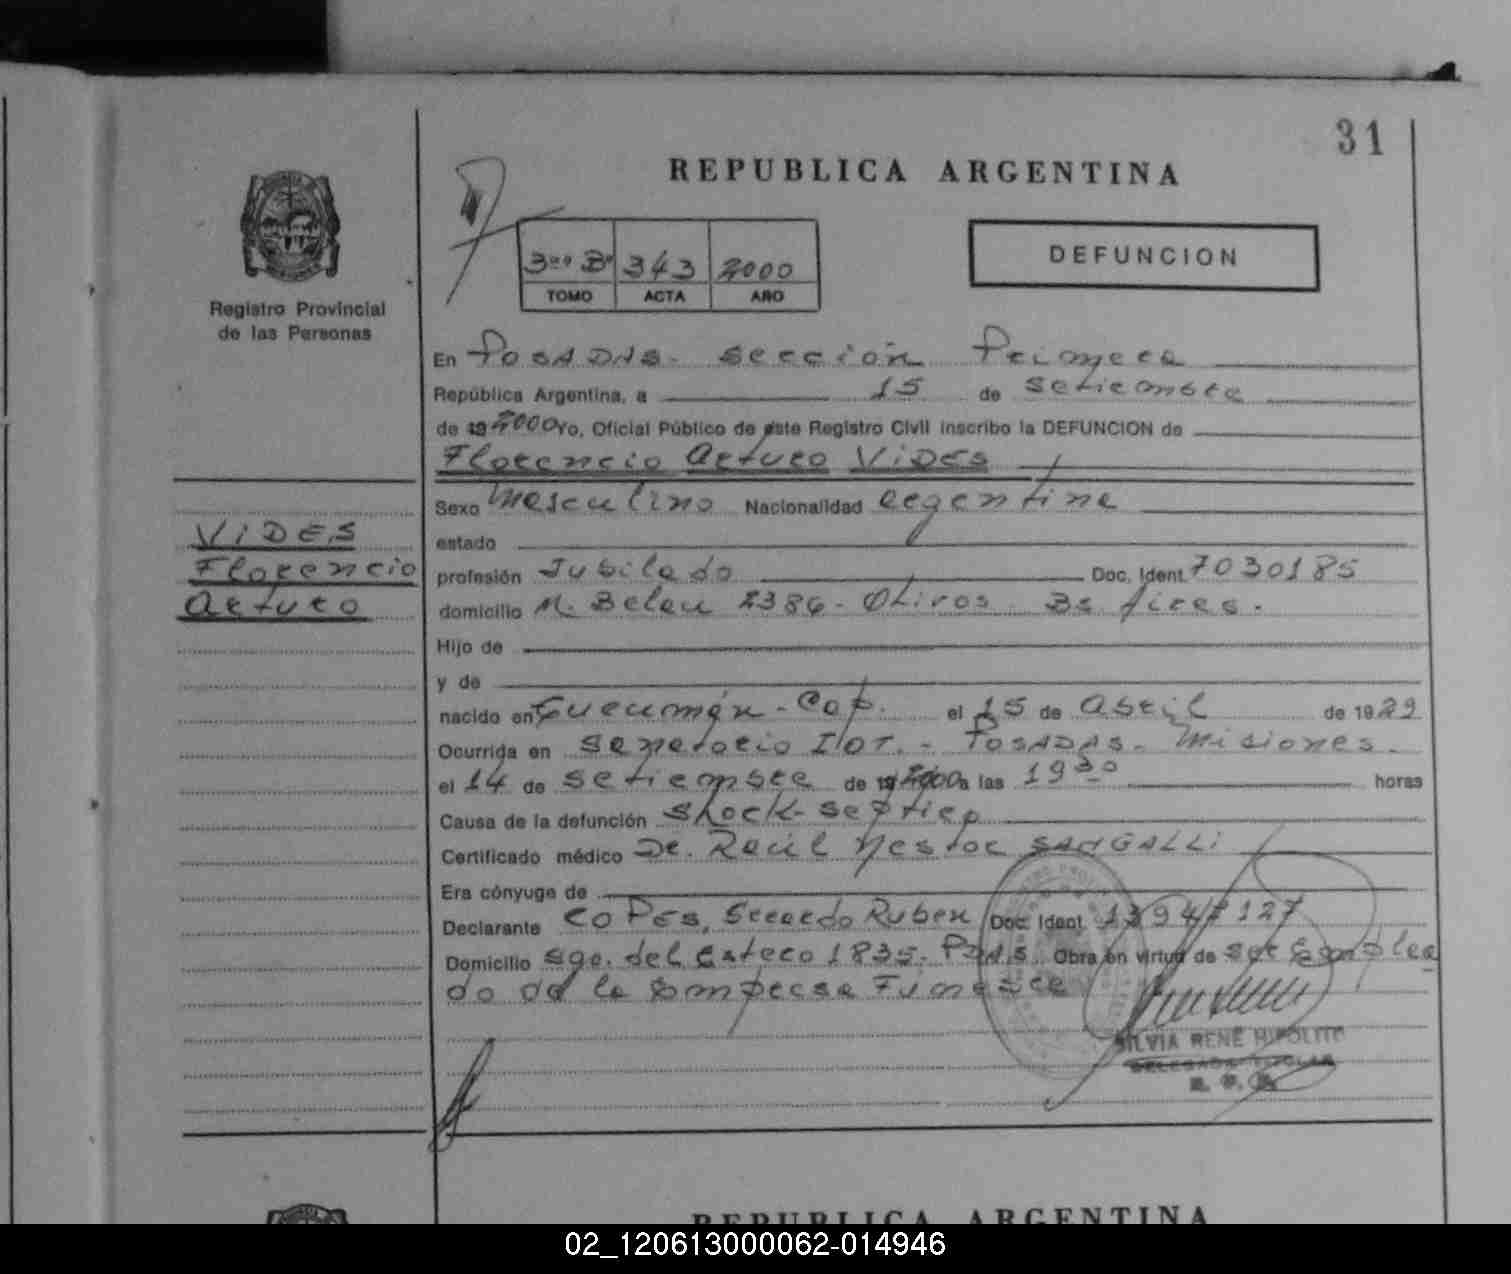 31
REPUBLICA ARGENTINA
Registro Provincial
de las Personas
3ro Bo 343 2000
TOMO ACTA AÑO
DEFUNCION
En Posadas. Sección Primera
República Argentina, a 15 de Setiembre
de 19 2000 Yo, Oficial Público de este Registro Civil inscribo la DEFUNCION de
Florencio Arturo VIDES
Sexo Masculino Nacionalidad argentina
estado
profesión Jubilado Doc. Ident. 7030185
domicilio M. Belau 2386 - Olivos. Bs Aires.
Hijo de
y de
nacido en Tucumán - Cap. el 15 de Abril de 1929
Ocurrida en Sanatorio IOT. - POSADAS - Misiones.
el 14 de Setiembre de 19 2000 a las 19 30 horas
Causa de la defunción Shock - septico
Certificado médico Dr. Raúl Nestor SANGALLI
Era cónyuge de
Declarante COPES, Gerardo Ruben Doc. Ident. 13947127
Domicilio Sgo. del Estero 1835. Pdas. Obra en virtud de ser Emplea
do de la Empresa Funebre
SILVIA RENE HIPOLITO
DELEGADA TITULAR
VIDES
Florencio
Arturo
REPUBLICA ARGENTINA
02_120613000062-014946